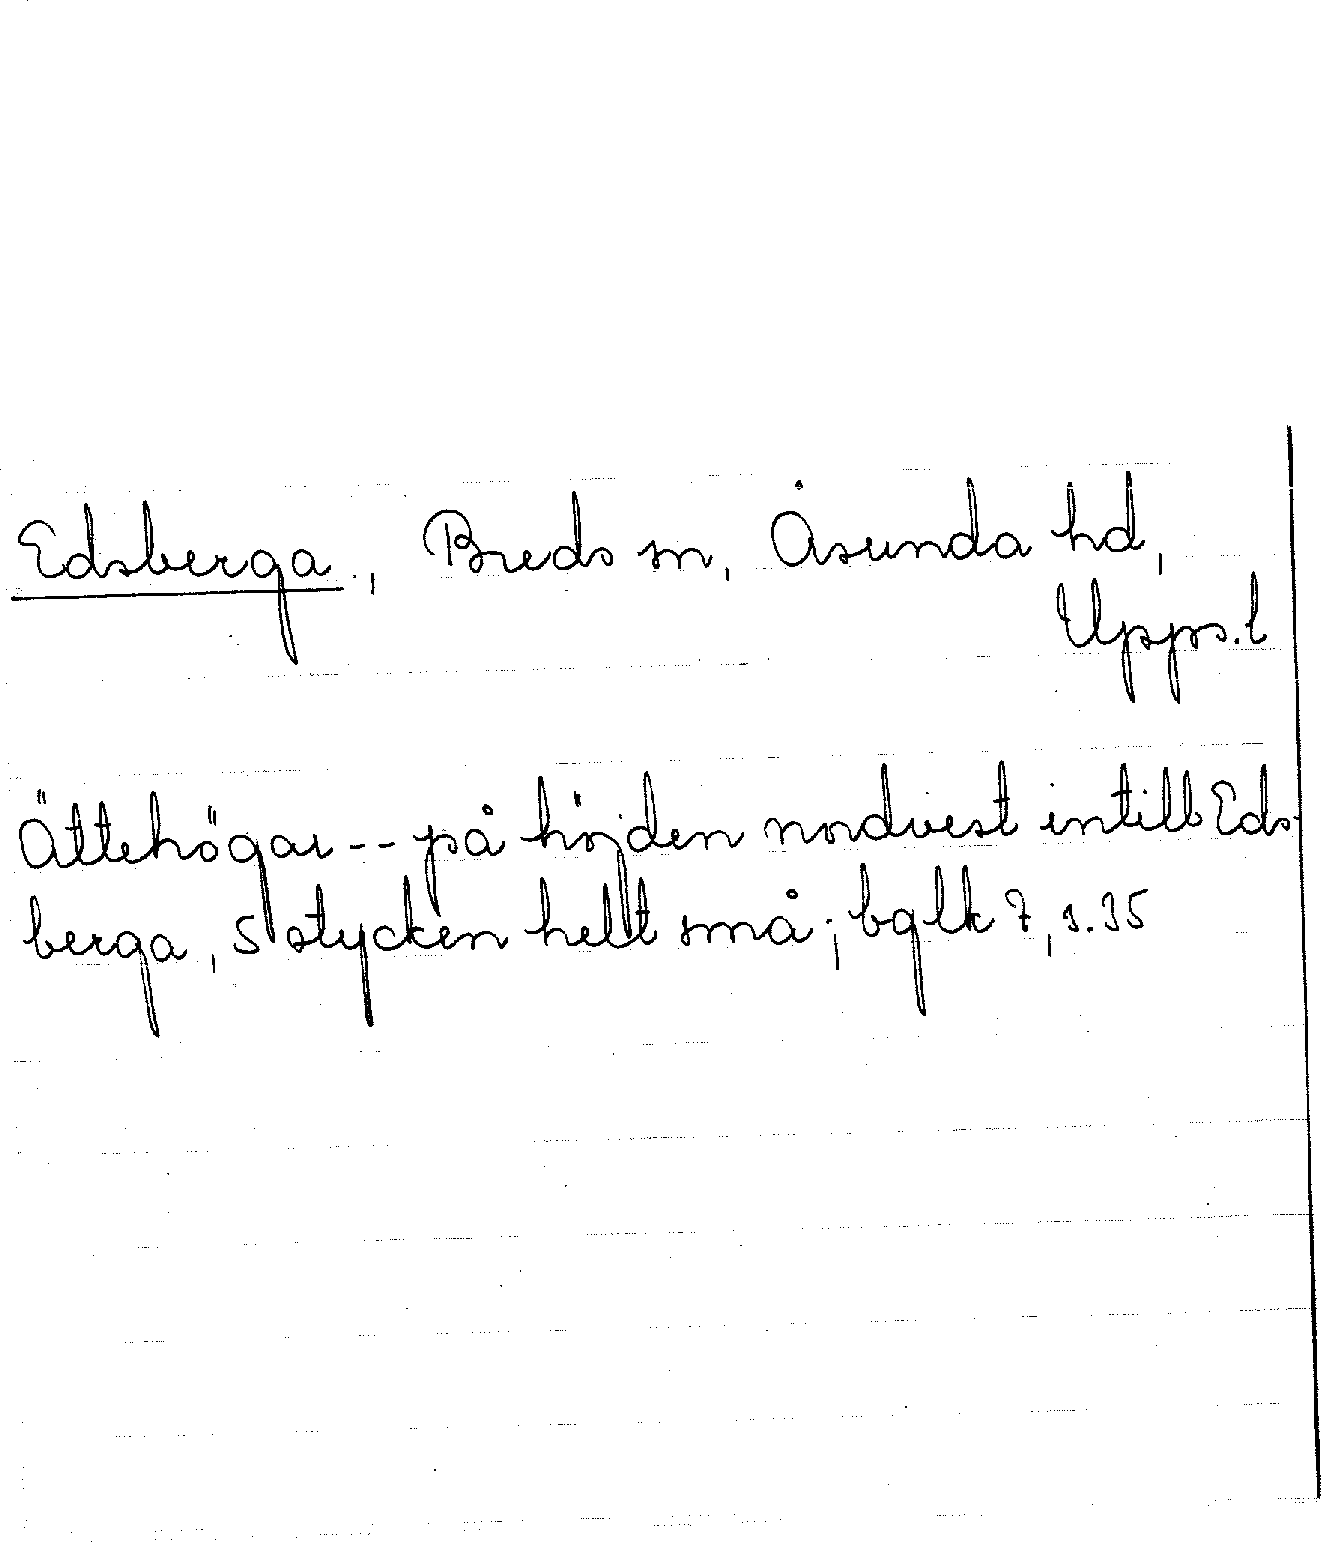 Edsberga, Breds sn, Åsunda hd,
Upps.l
Ättehögar -- på höjden nordvest intill Eds-
berga, 5 stycken helt små; bglk 7, s.35